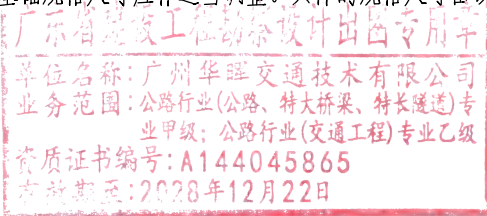 基础规格尺寸应作适当调整。具体的规格尺寸
广东省建设工程勘察设计出图专用章
单位名称:广州华晖交通技术有限公司
业务范围:公路行业(公路、特大桥梁、特长隧道)专
业甲级;公路行业(交通工程)专业乙级
资质证书编号:A144045865
有效期至:2028年12月22日